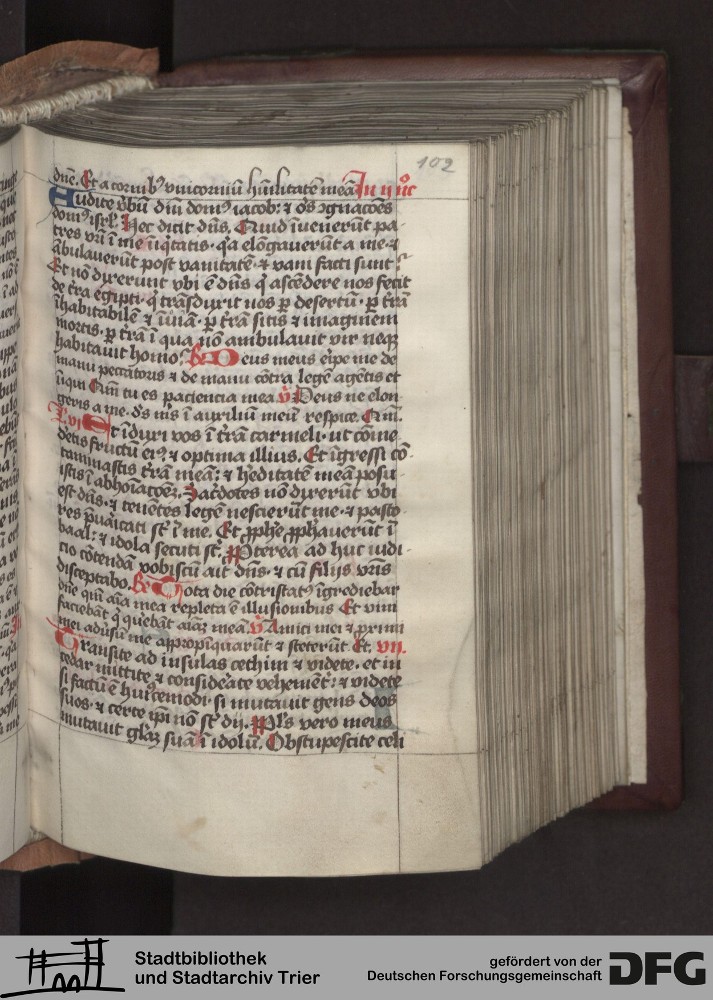 102
dn̄e. Et a cornibꝰ vnicorniū hūilitatē meā In ij noc̄
Audite v̓bū dn̄i domꝰ iacob: ⁊ oēs ꝯgnacōes
domꝰ isrl̓. Hec dicit dn̄s. Quid īuenerūt pa-
tres vr̄i ī me īiq̓tatis. q̓a elōgauerūt a me. ⁊
ābulauerūt post vanitatē. ⁊ vani facti sunt.
Et nō dixerunt vbi ē dn̄s q̓ ascēdere nos fecit
de tr̄a egipti. q̓ trāsduxit nos ꝑ desertū. ꝑ tr̄ā
īhabitabilē ⁊ īuiā. ꝑ tr̄ā sitis ⁊ imaginem
mortis. ꝑ tr̄ā ī qua nō ambulauit vir neqꝫ
habitauit homo. R̄ Deus meus eripe me de
manu peccatoris ⁊ de manu cōtra legē agētis et
īiqui Qm̄ tu es paciencia mea v̄ Deus ne elon
geris a me. ds̄ ms̄ ī auxiliū meū respice. Qm̄.
L. vi Et īduxi vos ī tr̄ā carmeli. ut cōme
detis fructū eiꝰ. ⁊ optima illius. Et īgressi cō-
taminastis tr̄ā meā: ⁊ heditatē meā posu-
istis ī abhoīacōeꝫ. Sac̓dotes nō dixerūt vbi
est dn̄s. ⁊ tenētes legē nescierūt me. ⁊ pasto-
res p̄uaricati st̄ ī me. Et ꝓphe ꝓphauerūt ī
baal: ⁊ idola secuti st̄. Pꝓterea ad huc iudi-
cio cōtendā vobiscū ait dn̄s. ⁊ cū filijs vr̄is
disceptabo. R̄ Tota die cōtristatꝰ īgrediebar
dn̄e qm̄ aīa mea repleta ē illusionibus Et vim
faciebāt q̓ quebāt aīaꝫ meā. v̄ Amici mei ⁊ ꝓximi
mei adūsū me appropīquarūt ⁊ steterūt. Et. vij.
Transite ad insulas cethim ⁊ videte. et in
cedar mittite ⁊ consid̓ate vehemēt̓: ⁊ videte
si factū ē huiꝰcemodi. si mutauit gens deos
suos. ⁊ certe ip̄i nō st̄ dij. Ppl̓s vero meus
mutauit gl̓aꝫ suā ī idolū. Obstupescite celi
Stadtbibliothek
und Stadtarchiv Trier
gefördert von der
Deutschen Forschungsgemeinschaft
DFG